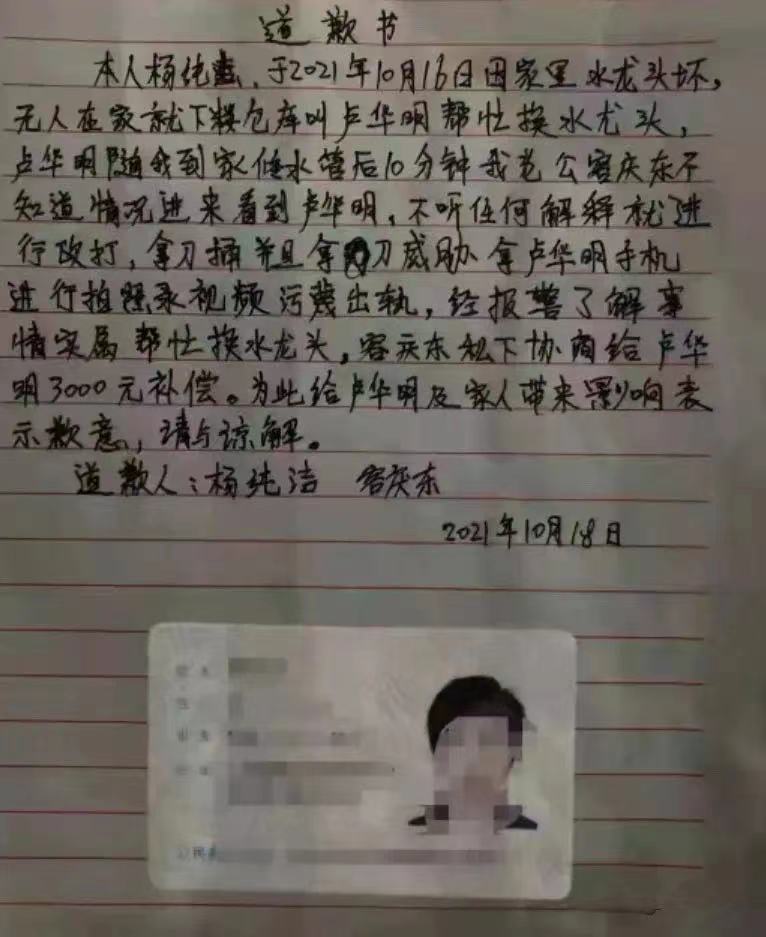 道歉书
本人杨纯洁，于2021年10月16日因家里水龙头坏，
无人在家就下楼仓库叫卢华明帮忙换水龙头，
卢华明随我到家修水管后10分钟我老公容庆东不
知道情况进来看到卢华明，不听任何解释就进
行攻打，拿刀捅并且拿刀威胁拿卢华明手机
进行拍照录视频污蔑出轨，经报警了解事
情实属帮忙换水龙头，容庆东私下协商给卢华
明3000元补偿。为此给卢华明及家人带来影响表
示歉意，请与谅解。
道歉人：杨纯洁 容庆东
2021年10月18日